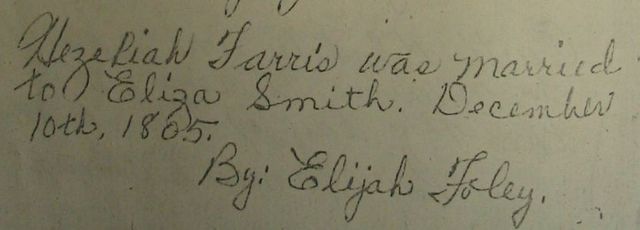 Hezekiah Farris was married
to Eliza Smith. December
10th, 1865.
By: Elijah Foley.